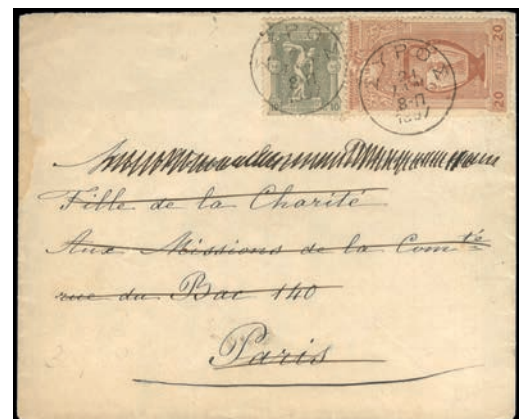 ΣΥΡΟΣ
ΣΥΡΟΣ
21
8-Π
8-Π
1897
20
20
Fille de la Charité
Aux Missions de la Comté
rue du Bac 140
Paris